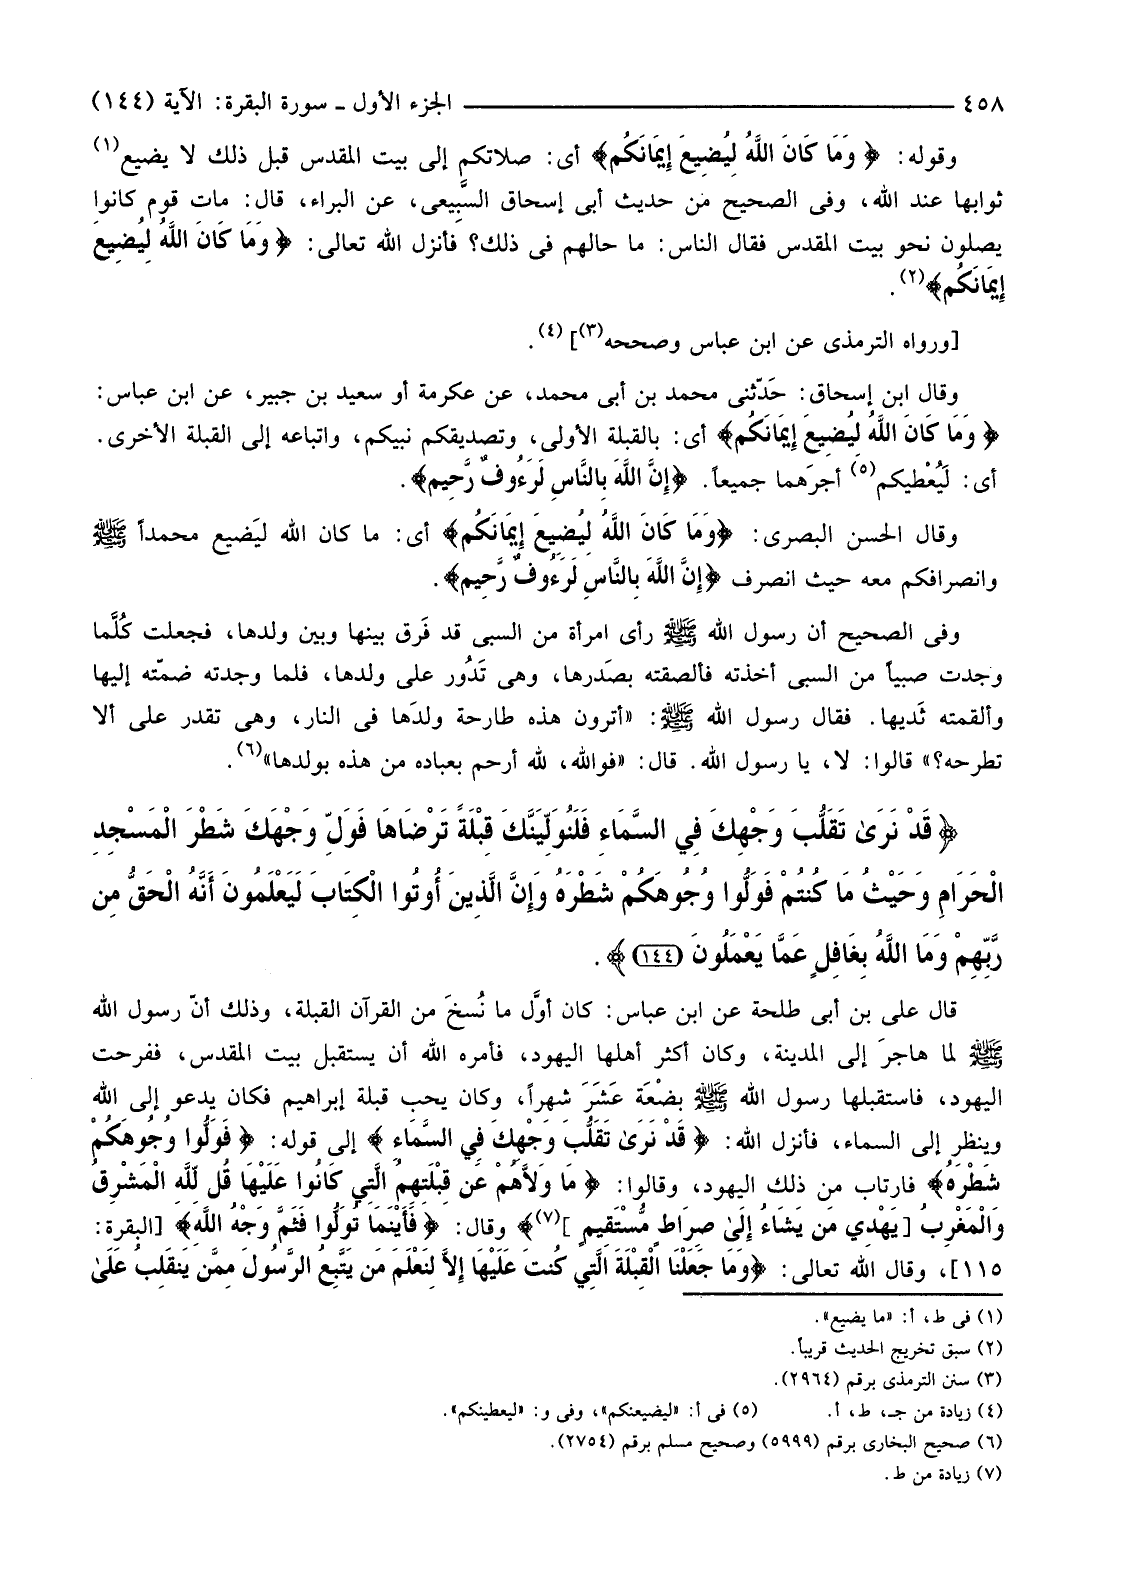 ٤٥٨ ــــــــــــــــ الجزء الأول ـ سورة البقرة: الآية (١٤٤)
وقوله: ﴿ وَمَا كَانَ اللَّهُ لِيُضِيعَ إِيمَانَكُم﴾ أى: صلاتكم إلى بيت المقدس قبل ذلك لا يضيع(١)
ثوابها عند الله، وفى الصحيح من حديث أبى إسحاق السَّبِيعى، عن البراء، قال: مات قوم كانوا
يصلون نحو بيت المقدس فقال الناس: ما حالهم فى ذلك؟ فأنزل الله تعالى: ﴿ وَمَا كَانَ اللَّهُ لِيُضِيعَ
إِيمَانَكُم﴾(٢).
[ورواه الترمذى عن ابن عباس وصححه(٣)] (٤).
وقال ابن إسحاق: حَدّثنى محمد بن أبى محمد، عن عكرمة أو سعيد بن جبير، عن ابن عباس:
﴿ وَمَا كَانَ اللَّهُ لِيُضِيعَ إِيمَانَكُم﴾ أى: بالقبلة الأولى، وتصديقكم نبيكم، واتباعه إلى القبلة الأخرى.
أى: لَيُعْطيكم(٥) أجرَهما جميعاً. ﴿إِنَّ اللَّهَ بِالنَّاسِ لَرَءُوفٌ رَّحِيم﴾.
وقال الحسن البصرى: ﴿وَمَا كَانَ اللَّهُ لِيُضِيعَ إِيمَانَكُم﴾ أى: ما كان الله ليَضيع محمداً ﷺ
وانصرافكم معه حيث انصرف ﴿إِنَّ اللَّهَ بِالنَّاسِ لَرَءُوفٌ رَّحِيم﴾.
وفى الصحيح أن رسول الله ﷺ رأى امرأة من السبى قد فَرق بينها وبين ولدها، فجعلت كُلَّما
وجدت صبياً من السبى أخذته فألصقته بصَدرها، وهى تَدُور على ولدها، فلما وجدته ضمّته إليها
وألقمته ثَديها. فقال رسول الله ﷺ: «أترون هذه طارحة ولدَها فى النار، وهى تقدر على ألا
تطرحه؟» قالوا: لا، يا رسول الله. قال: «فوالله، لله أرحم بعباده من هذه بولدها»(٦).
﴿ قَدْ نَرَىٰ تَقَلُّبَ وَجْهِكَ فِي السَّمَاءِ فَلَنُوَلِّيَنَّكَ قِبْلَةً تَرْضَاهَا فَوَلِّ وَجْهَكَ شَطْرَ الْمَسْجِدِ
الْحَرَامِ وَحَيْثُ مَا كُنتُمْ فَوَلُّوا وُجُوهَكُمْ شَطْرَهُ وَإِنَّ الَّذِينَ أُوتُوا الْكِتَابَ لَيَعْلَمُونَ أَنَّهُ الْحَقُّ مِن
رَّبِّهِمْ وَمَا اللَّهُ بِغَافِلٍ عَمَّا يَعْمَلُونَ (١٤٤)﴾.
قال على بن أبى طلحة عن ابن عباس: كان أوَّل ما نُسخَ من القرآن القبلة، وذلك أنّ رسول الله
ﷺ لما هاجرَ إلى المدينة، وكان أكثر أهلها اليهود، فأمره الله أن يستقبل بيت المقدس، ففرحت
اليهود، فاستقبلها رسول الله ﷺ بضْعَة عَشَرَ شهراً، وكان يحب قبلة إبراهيم فكان يدعو إلى الله
وينظر إلى السماء، فأنزل الله: ﴿ قَدْ نَرَىٰ تَقَلُّبَ وَجْهِكَ فِي السَّمَاءِ ﴾ إلى قوله: ﴿ فَوَلُّوا وُجُوهَكُمْ
شَطْرَهُ﴾ فارتاب من ذلك اليهود، وقالوا: ﴿ مَا وَلاَّهُمْ عَن قِبْلَتِهِمُ الَّتِي كَانُوا عَلَيْهَا قُل لِّلَّهِ الْمَشْرِقُ
وَالْمَغْرِبُ [يَهْدِي مَن يَشَاءُ إِلَىٰ صِرَاطٍ مُّسْتَقِيمٍ ](٧)﴾ وقال: ﴿ فَأَيْنَمَا تُوَلُّوا فَثَمَّ وَجْهُ اللَّهِ﴾ [البقرة:
١١٥]، وقال الله تعالى: ﴿وَمَا جَعَلْنَا الْقِبْلَةَ الَّتِي كُنتَ عَلَيْهَا إِلاَّ لِنَعْلَمَ مَن يَتَّبِعُ الرَّسُولَ مِمَّن يَنقَلِبُ عَلَىٰ
(١) فى ط، أ: «ما يضيع».
(٢) سبق تخريج الحديث قريباً.
(٣) سنن الترمذى برقم (٢٩٦٤).
(٤) زيادة من جـ، ط، أ. (٥) فى أ: «ليضيعنكم»، وفى و: «ليعطينكم».
(٦) صحيح البخارى برقم (٥٩٩٩) وصحيح مسلم برقم (٢٧٥٤).
(٧) زيادة من ط.